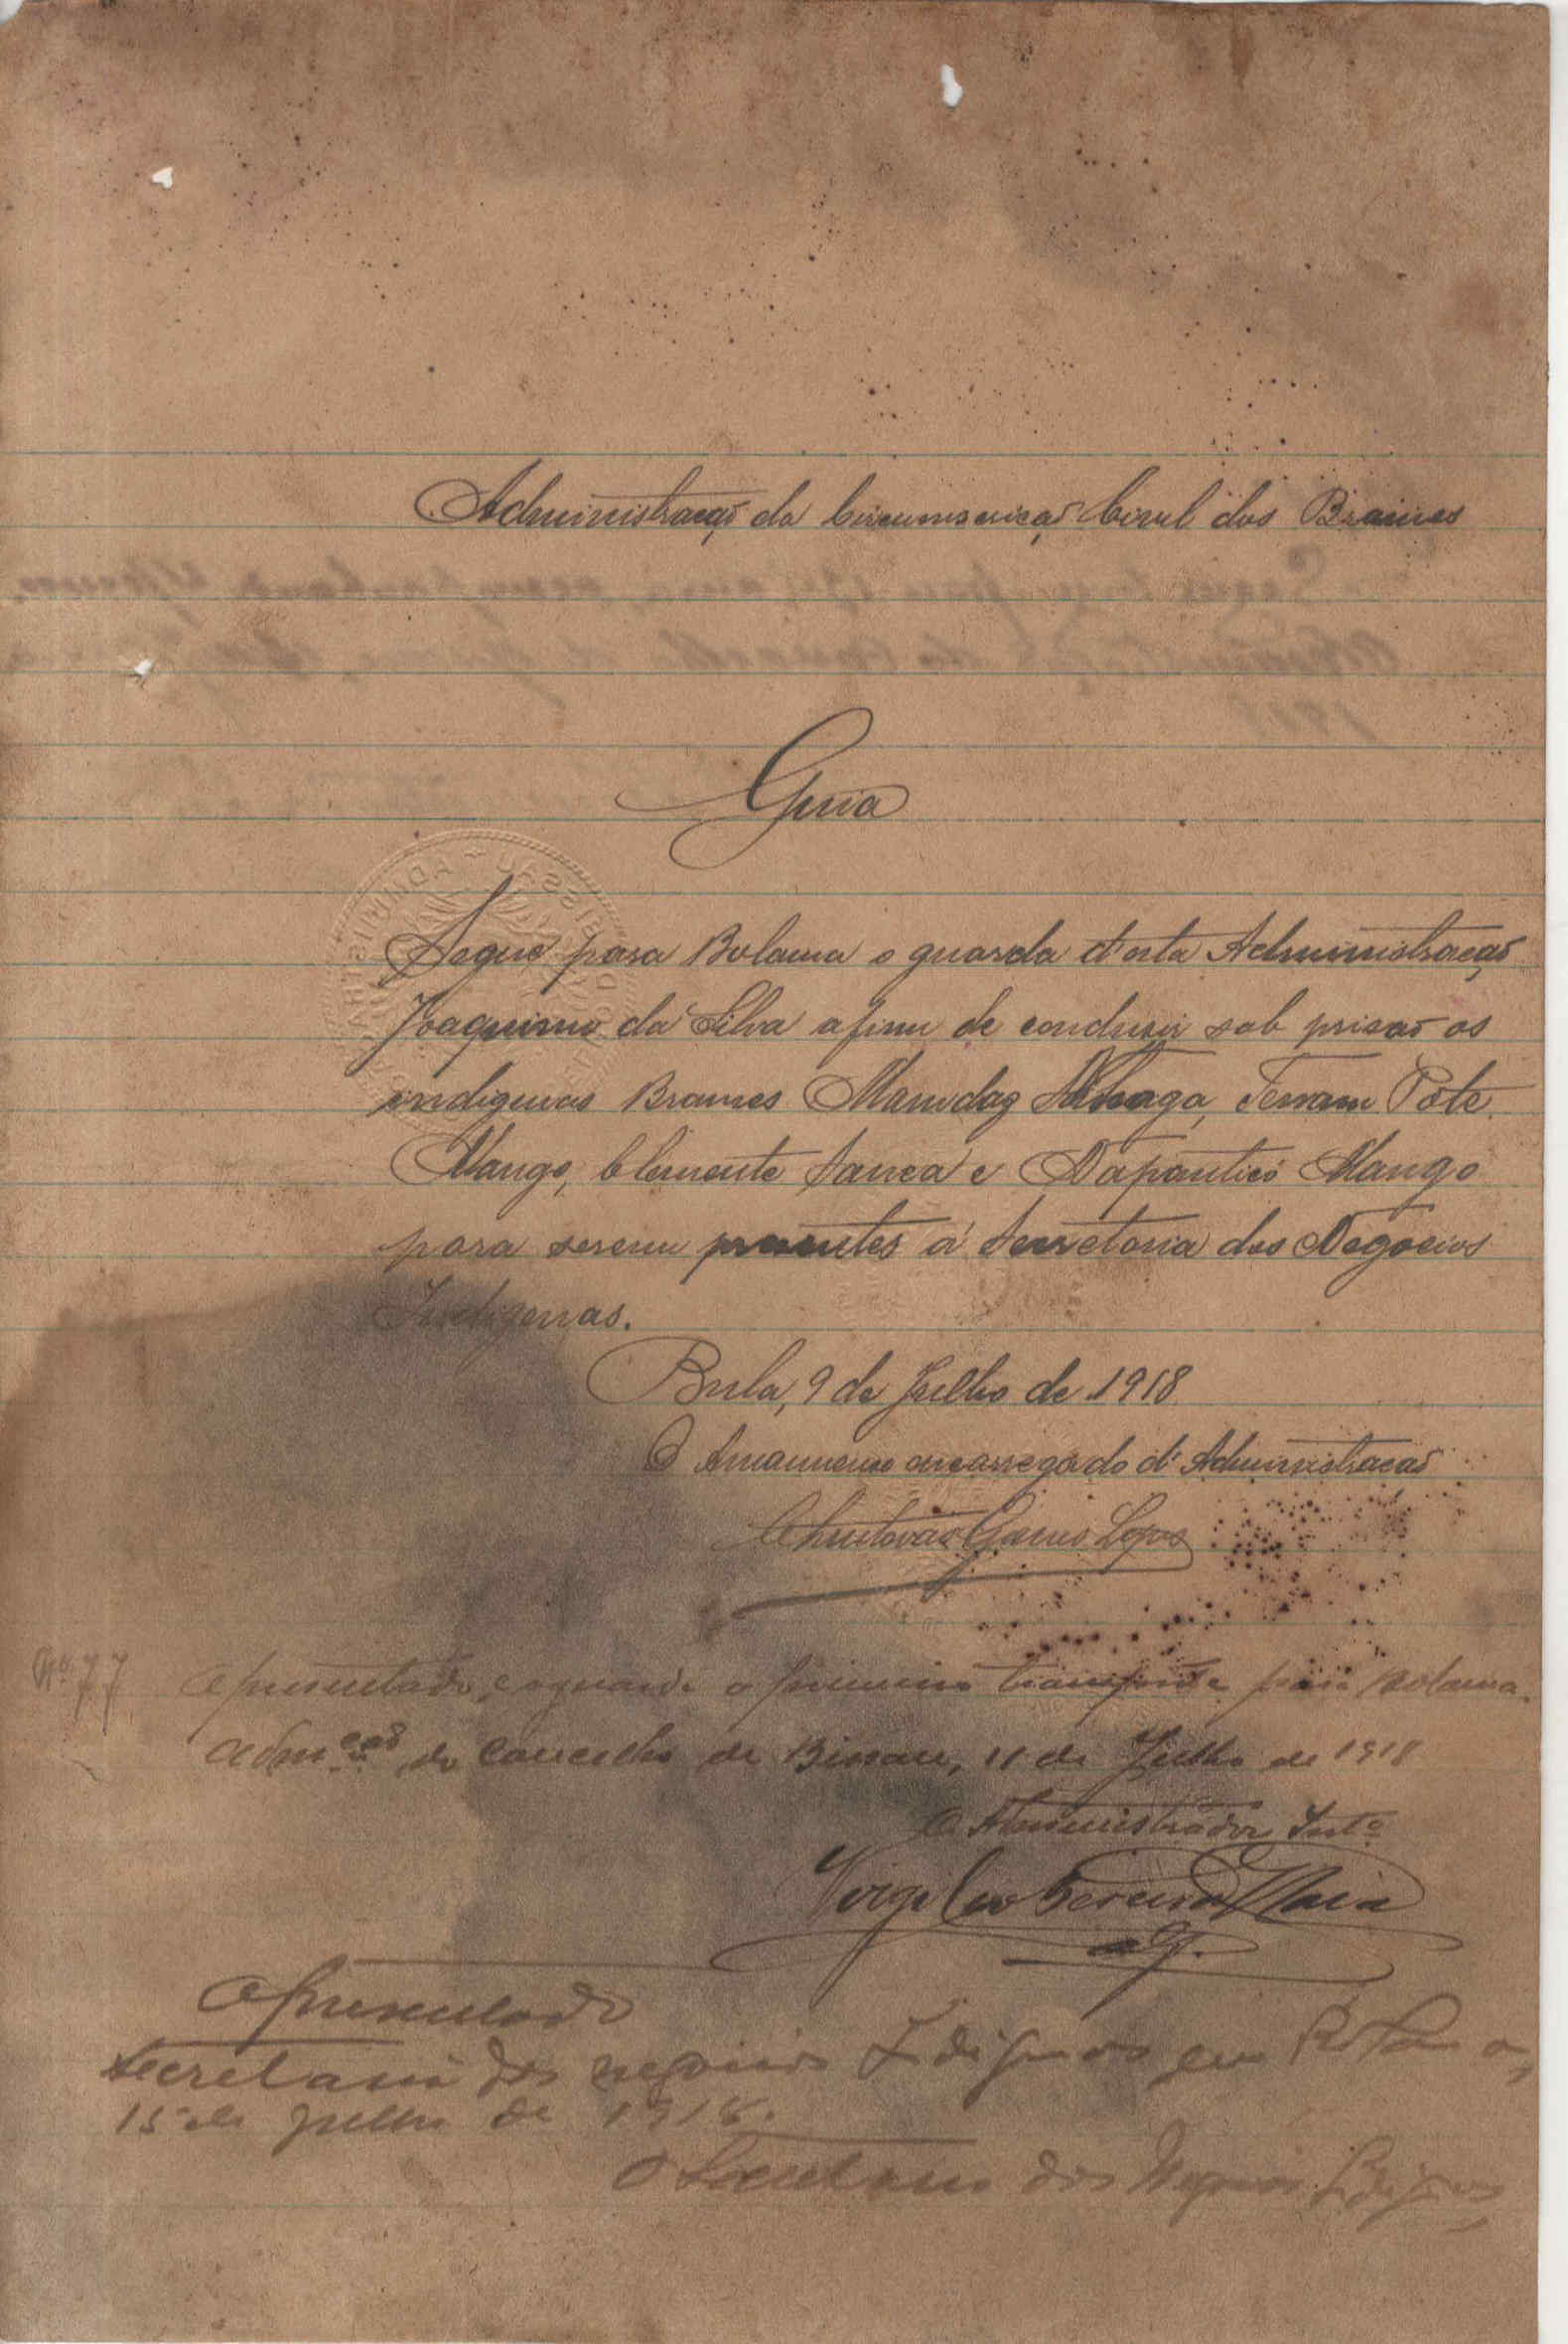 Administração da Circumscrição Civil dos Brames
Guia
Segue para Bolama o guarda d'esta Administração
Joaquim da Silva afim de conduzir sob prisão os
indigenas Brames Mamdag Nhaga, Ferram Pote
Mango, Clemente Sanca e Napantico Mango
para serem presentes á Secretaria dos Negocios
Indigenas.
Bula, 9 de Julho de 1918
O Amanuense encarregado d'Administração
Christovão Gomes Lopes
Nº 77 Apresentado, e aguarde o primeiro transporte para Bolama.
Adm.ção do Concelho de Bissau, 11 de Julho de 1918
O Administrador Intº
Virgilio Pereira Maia
Apresentado
Secretaria dos negocios Indigenas em Bolama,
15 de Julho de 1918.
O Secretario dos Negocios Indigenas,